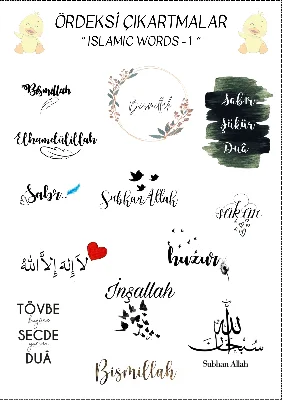 ÖRDEKSİ ÇIKARTMALAR
" ISLAMIC WORDS -1 "
Bismillah
Bismillah
Sabır
Şükür
Duâ
Elhamdülillah
Sabır..
Subhan Allah
sakin
لا إله إلا الله
huzur
İnşallah
TÖVBE
SECDE
DUÂ
سبحان الله
Subhan Allah
Bismillah